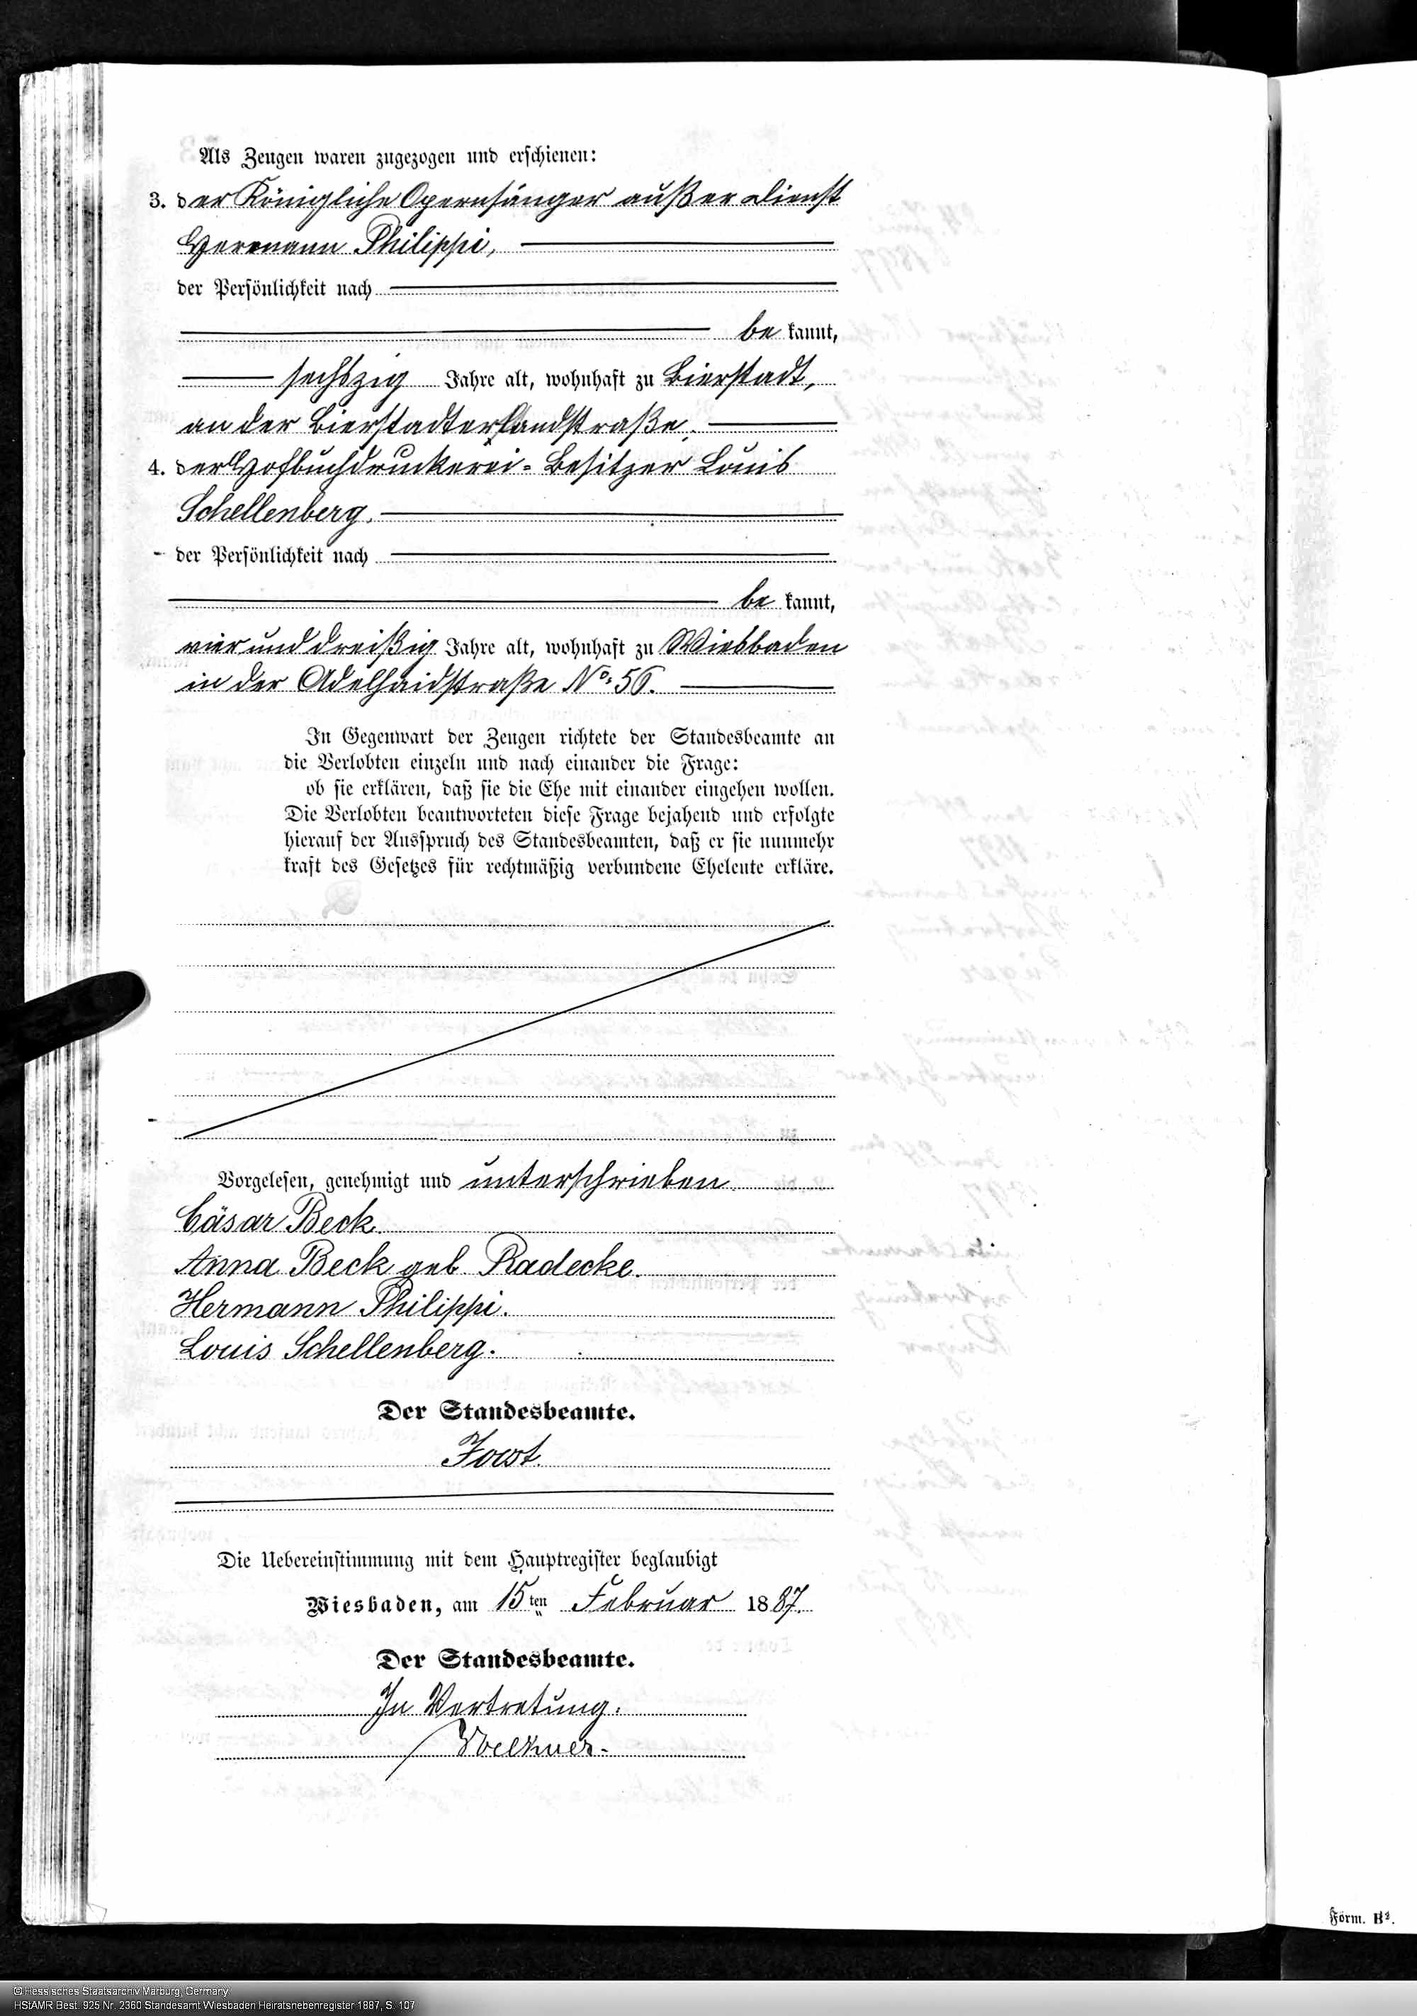 Als Zeugen waren zugezogen und erschienen:
3. der Königliche Opernsänger außer Dienst
Hermann Philippi,
der Persönlichkeit nach
be kannt,
sechszig Jahre alt, wohnhaft zu Bierstadt,
an der Bierstadter Landstraße.
4. der Hofbuchdruckerei-Besitzer Louis
Schellenberg,
der Persönlichkeit nach
be kannt,
vier und dreißig Jahre alt, wohnhaft zu Wiesbaden
in der Adelhaidstraße No. 56.
In Gegenwart der Zeugen richtete der Standesbeamte an
die Verlobten einzeln und nach einander die Frage:
ob sie erklären, daß sie die Ehe mit einander eingehen wollen.
Die Verlobten beantworteten diese Frage bejahend und erfolgte
hierauf der Ausspruch des Standesbeamten, daß er sie nunmehr
kraft des Gesetzes für rechtmäßig verbundene Eheleute erkläre.
Vorgelesen, genehmigt und unterschrieben
Cäsar Beck
Anna Beck geb Radecke.
Hermann Philippi.
Louis Schellenberg.
Der Standesbeamte.
Joost.
Die Uebereinstimmung mit dem Hauptregister beglaubigt
Wiesbaden, am 15ten Februar 1887.
Der Standesbeamte.
In Vertretung.
Voelkner.
Form. B².
© Hessisches Staatsarchiv Marburg, Germany
HStAMR Best. 925 Nr. 2360 Standesamt Wiesbaden Heiratsnebenregister 1887, S. 107